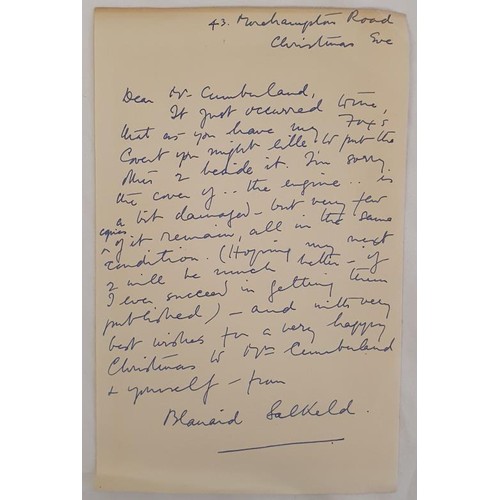 43. Morehampton Road
Christmas Eve
Dear Mr Cumberland,
It just occurred to me,
that as you have my Fox's
Covert you might like to put the
other 2 beside it. I'm sorry
the cover of .. the engine .. is
a bit damaged - but very few
copies
^ of it remain, all in the same
condition. (Hoping my next
2 will be much better - if
I ever succeed in getting them
published) - and with very
best wishes for a very happy
Christmas to Mrs Cumberland
+ yourself - from
Blanaid Salkeld.